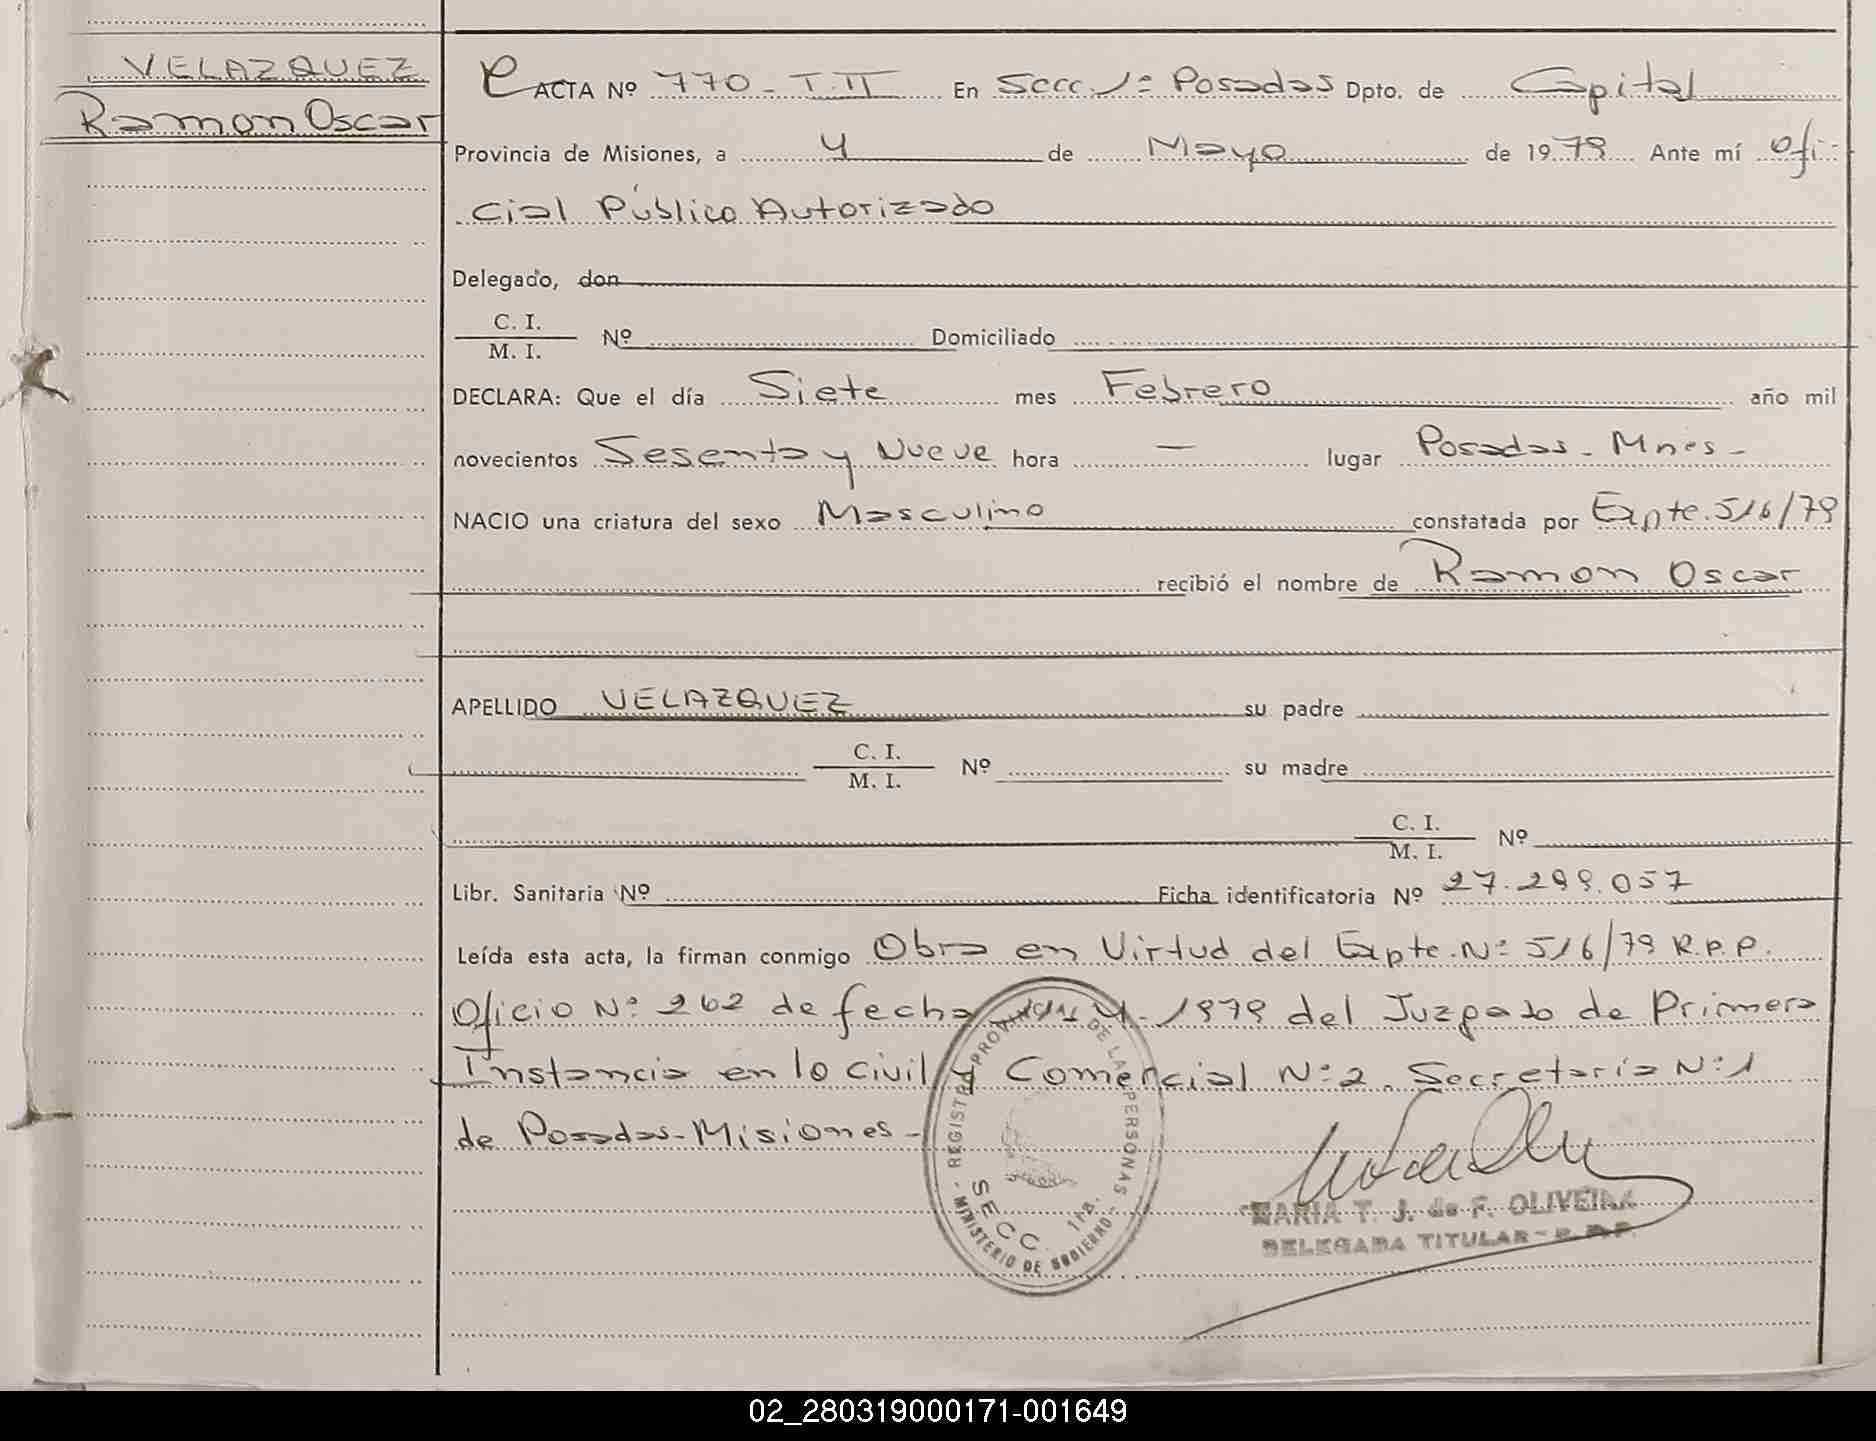 VELAZQUEZ
Ramon Oscar
ACTA Nº 770 - T. II En Secc. 1ª Posadas Dpto. de Capital
Provincia de Misiones, a 4 de Mayo de 1979 Ante mí Ofi-
cial Público Autorizado
Delegado, don
C. I.
M. I.
Nº Domiciliado
DECLARA: Que el día Siete mes Febrero año mil
novecientos Sesenta y Nueve hora — lugar Posadas - Mnes -
NACIO una criatura del sexo Masculino constatada por Expte. 516/79
recibió el nombre de Ramon Oscar
APELLIDO VELAZQUEZ su padre
C. I.
M. I.
Nº su madre
C. I.
M. I.
Nº
Libr. Sanitaria Nº Ficha identificatoria Nº 27.299.057
Leída esta acta, la firman conmigo Obra en Virtud del Expte. Nº 516/79 R.P.P.
Oficio Nº 262 de fecha 4-1979 del Juzgado de Primera
Instancia en lo civil y Comercial Nº 2. Secretaría Nº 1
de Posadas - Misiones -
REGISTRO PROVINCIAL DE LAS PERSONAS
SECC. 1ra.
MINISTERIO DE GOBIERNO
MARIA T. J. de F. OLIVEIRA
DELEGADA TITULAR - R. P. P.
02_280319000171-001649